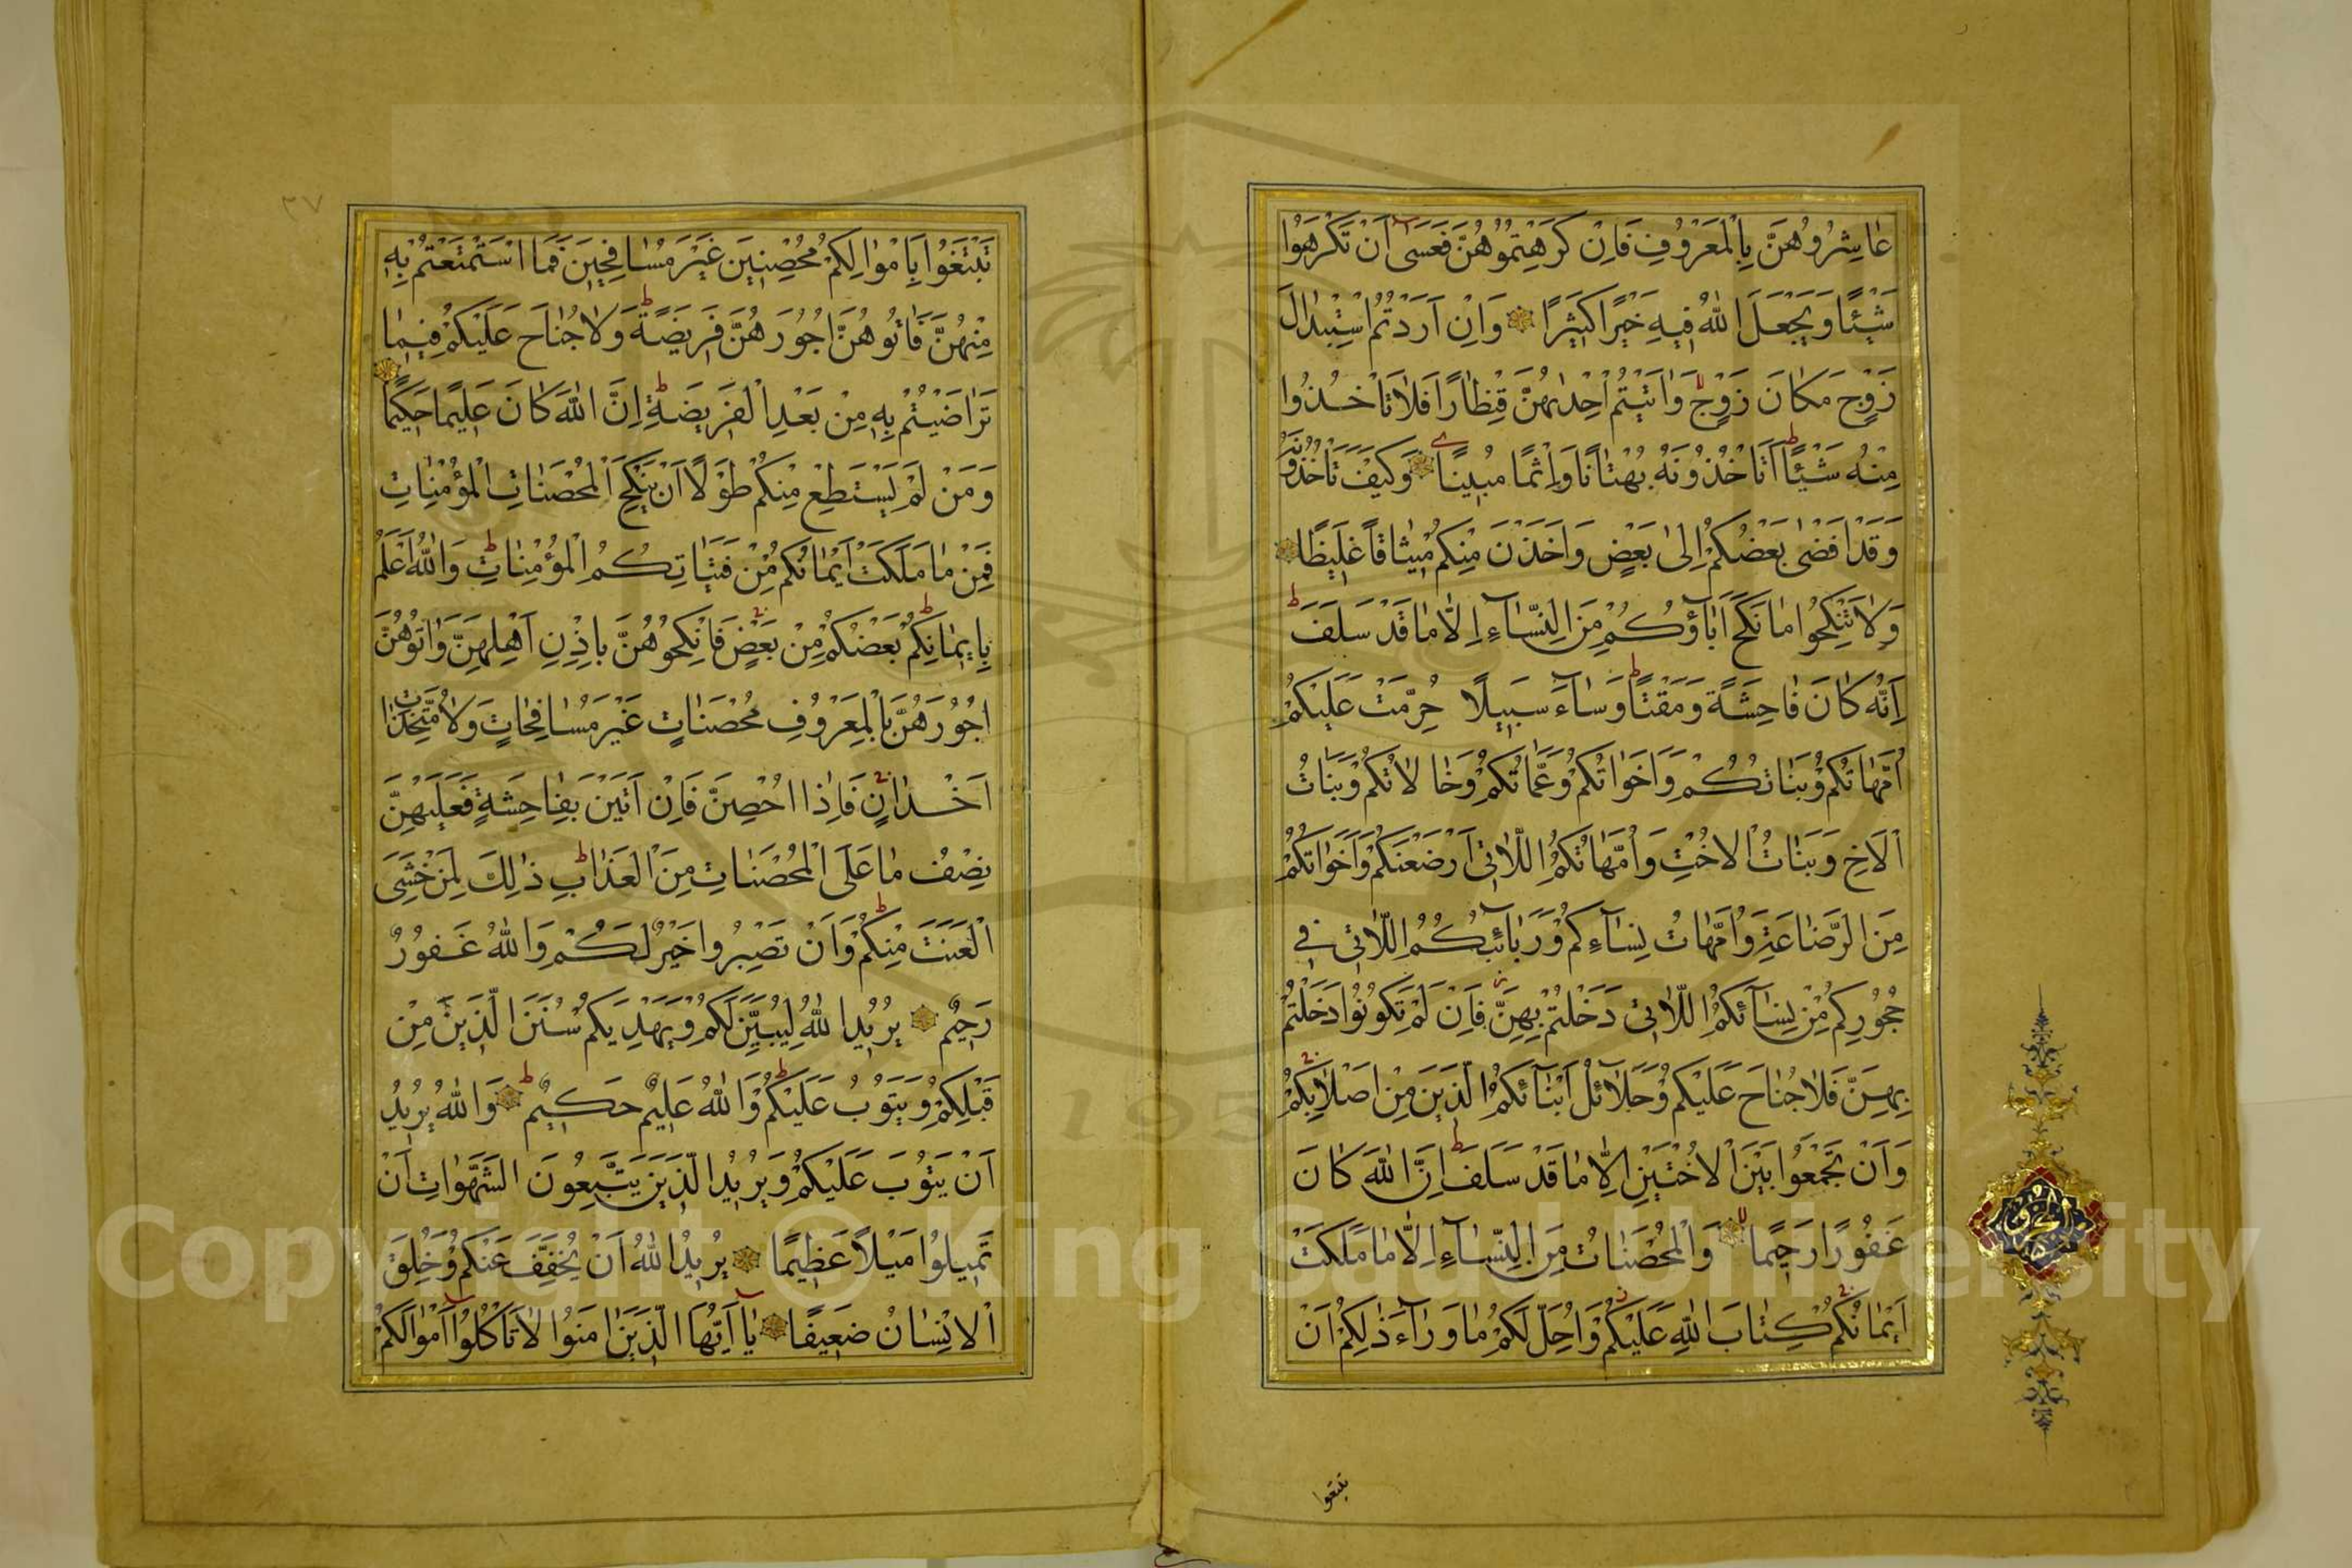 عَاشِرُوهُنَّ بِالْمَعْرُوفِ فَاِنْ كَرِهْتُمُوهُنَّ فَعَسٰى اَنْ تَكْرَهُوا
شَيْئًا وَيَجْعَلَ اللّٰهُ فِيهِ خَيْرًا كَثِيرًا وَاِنْ اَرَدْتُمُ اسْتِبْدَالَ
زَوْجٍ مَكَانَ زَوْجٍ وَاٰتَيْتُمْ اِحْدٰيهُنَّ قِنْطَارًا فَلَا تَأْخُذُوا
مِنْهُ شَيْئًا اَتَأْخُذُونَهُ بُهْتَانًا وَاِثْمًا مُبِينًا وَكَيْفَ تَأْخُذُونَهُ
وَقَدْ اَفْضٰى بَعْضُكُمْ اِلٰى بَعْضٍ وَاَخَذْنَ مِنْكُمْ مِيثَاقًا غَلِيظًا
وَلَا تَنْكِحُوا مَا نَكَحَ اٰبَاؤُكُمْ مِنَ النِّسَاءِ اِلَّا مَا قَدْ سَلَفَ
اِنَّهُ كَانَ فَاحِشَةً وَمَقْتًا وَسَاءَ سَبِيلًا حُرِّمَتْ عَلَيْكُمْ
اُمَّهَاتُكُمْ وَبَنَاتُكُمْ وَاَخَوَاتُكُمْ وَعَمَّاتُكُمْ وَخَالَاتُكُمْ وَبَنَاتُ
الْاَخِ وَبَنَاتُ الْاُخْتِ وَاُمَّهَاتُكُمُ اللَّاتِي اَرْضَعْنَكُمْ وَاَخَوَاتُكُمْ
مِنَ الرَّضَاعَةِ وَاُمَّهَاتُ نِسَاءِكُمْ وَرَبَائِبُكُمُ اللَّاتِي فِي
حُجُورِكُمْ مِنْ نِسَائِكُمُ اللَّاتِي دَخَلْتُمْ بِهِنَّ فَاِنْ لَمْ تَكُونُوا دَخَلْتُمْ
بِهِنَّ فَلَا جُنَاحَ عَلَيْكُمْ وَحَلَائِلُ اَبْنَائِكُمُ الَّذِينَ مِنْ اَصْلَابِكُمْ
وَاَنْ تَجْمَعُوا بَيْنَ الْاُخْتَيْنِ اِلَّا مَا قَدْ سَلَفَ اِنَّ اللّٰهَ كَانَ
غَفُورًا رَحِيمًا وَالْمُحْصَنَاتُ مِنَ النِّسَاءِ اِلَّا مَا مَلَكَتْ
اَيْمَانُكُمْ كِتَابَ اللّٰهِ عَلَيْكُمْ وَاُحِلَّ لَكُمْ مَا وَرَاءَ ذٰلِكُمْ اَنْ
تبتغوا
٣٧
تَبْتَغُوا بِاَمْوَالِكُمْ مُحْصِنِينَ غَيْرَ مُسَافِحِينَ فَمَا اسْتَمْتَعْتُمْ بِهِ
مِنْهُنَّ فَاٰتُوهُنَّ اُجُورَهُنَّ فَرِيضَةً وَلَا جُنَاحَ عَلَيْكُمْ فِيمَا
تَرَاضَيْتُمْ بِهِ مِنْ بَعْدِ الْفَرِيضَةِ اِنَّ اللّٰهَ كَانَ عَلِيمًا حَكِيمًا
وَمَنْ لَمْ يَسْتَطِعْ مِنْكُمْ طَوْلًا اَنْ يَنْكِحَ الْمُحْصَنَاتِ الْمُؤْمِنَاتِ
فَمِنْ مَا مَلَكَتْ اَيْمَانُكُمْ مِنْ فَتَيَاتِكُمُ الْمُؤْمِنَاتِ وَاللّٰهُ اَعْلَمُ
بِاِيمَانِكُمْ بَعْضُكُمْ مِنْ بَعْضٍ فَانْكِحُوهُنَّ بِاِذْنِ اَهْلِهِنَّ وَاٰتُوهُنَّ
اُجُورَهُنَّ بِالْمَعْرُوفِ مُحْصَنَاتٍ غَيْرَ مُسَافِحَاتٍ وَلَا مُتَّخِذَاتِ
اَخْدَانٍ فَاِذَا اُحْصِنَّ فَاِنْ اَتَيْنَ بِفَاحِشَةٍ فَعَلَيْهِنَّ
نِصْفُ مَا عَلَى الْمُحْصَنَاتِ مِنَ الْعَذَابِ ذٰلِكَ لِمَنْ خَشِيَ
الْعَنَتَ مِنْكُمْ وَاَنْ تَصْبِرُوا خَيْرٌ لَكُمْ وَاللّٰهُ غَفُورٌ
رَحِيمٌ يُرِيدُ اللّٰهُ لِيُبَيِّنَ لَكُمْ وَيَهْدِيَكُمْ سُنَنَ الَّذِينَ مِنْ
قَبْلِكُمْ وَيَتُوبَ عَلَيْكُمْ وَاللّٰهُ عَلِيمٌ حَكِيمٌ وَاللّٰهُ يُرِيدُ
اَنْ يَتُوبَ عَلَيْكُمْ وَيُرِيدُ الَّذِينَ يَتَّبِعُونَ الشَّهَوَاتِ اَنْ
تَمِيلُوا مَيْلًا عَظِيمًا يُرِيدُ اللّٰهُ اَنْ يُخَفِّفَ عَنْكُمْ وَخُلِقَ
الْاِنْسَانُ ضَعِيفًا يَا اَيُّهَا الَّذِينَ اٰمَنُوا لَا تَأْكُلُوا اَمْوَالَكُمْ
Copyright © King Saud University
195